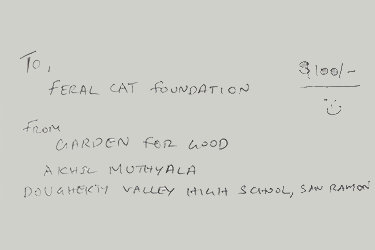 To,
$100/-
FERAL CAT FOUNDATION
FROM
GARDEN FOR GOOD
MUTHYALA
DOUGHERTY VALLEY HIGH SCHOOL, SAN RAMON